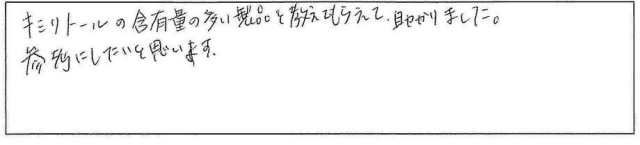 キシリトールの含有量の多い製品を教えてもらえて、助かりました。
参考にしたいと思います。